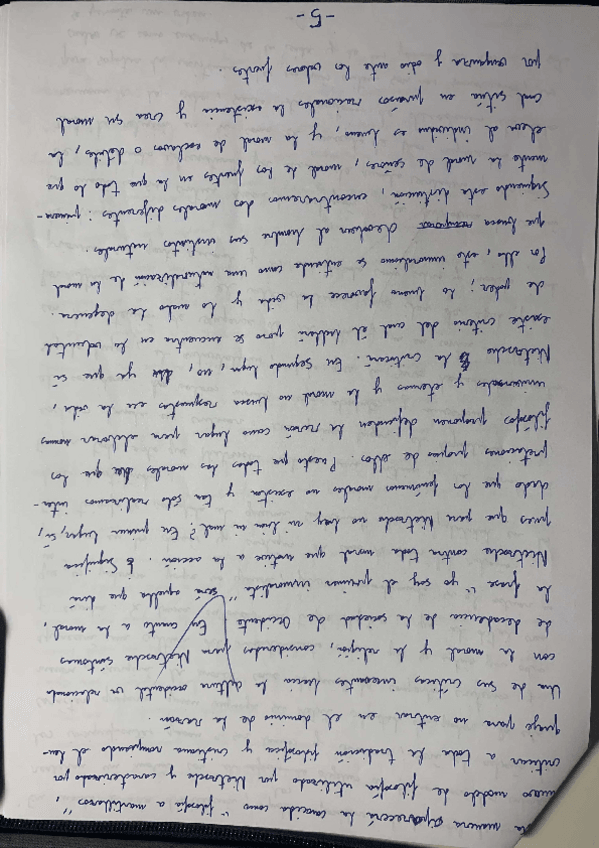 la manera aparecerá la conocida como "filosofía a martillazos",
nuevo modelo de filosofía utilizado por Nietzsche y caracterizado por
criticar a toda la tradición filosófica y cristiana rompiendo el len-
guaje para no entrar en el dominio de la razón.
Una de sus críticas incesantes hacia la cultura occidental va relacionada
con la moral y la religión, consideradas para Nietzsche síntomas
de decadencia de la sociedad de Occidente. En cuanto a la moral,
la frase "yo soy el primer inmoralista" será aquella que hará
Nietzsche contra toda moral que motive a la acción. ¿Significa
pues que para Nietzsche no hay ni bien ni mal? En primer lugar, sí,
dado que los fenómenos morales no existen y tan sólo realizamos inter-
pretaciones propias de ellos. Puesto que todas las morales que los
filósofos proponen dependen de la razón como lugar para elaborar normas
universales y eternas y la moral no busca respuestas en la vida,
Nietzsche la criticará. En segundo lugar, no, ya que sí
existe criterio del cual él hablará pero se encuentra en la voluntad
de poder; lo bueno favorece la vida y lo malo la degenera.
Por ello, este inmoralismo se entiende como una naturalización de la moral
que busca devolver al hombre sus instintos naturales.
Siguiendo esta distinción, encontraremos dos morales diferentes: primera-
mente la moral de señores, moral de los fuertes en la que todo lo que
eleva al individuo es bueno, y la moral de esclavos o débiles, la
cual sitúa en procesos racionales la existencia y crea su moral
por venganza y odio ante los valores fuertes.
-5-